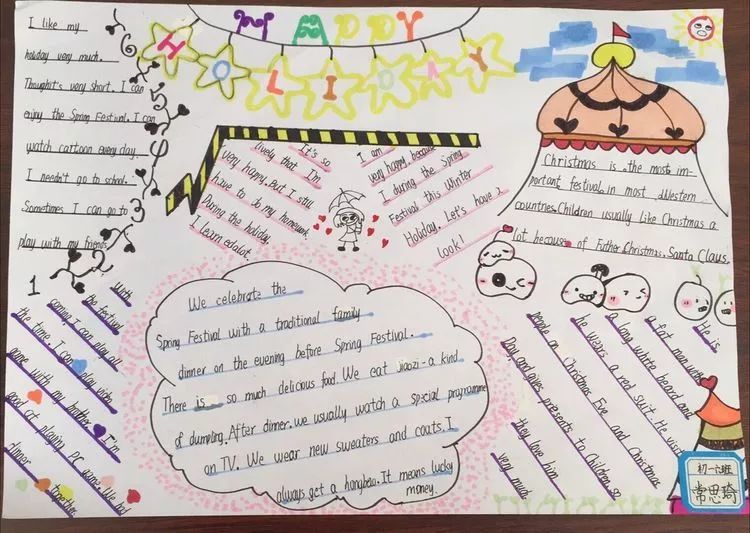 HAPPY
HOLIDAY
I like my
holiday very much.
Thought's very short. I can
enjoy the Spring Festival. I can
watch cartoon every day.
I needn't go to school.
Sometimes I can go to
play with my friends.
6
5
4
3
2
1
It's so
lively that I'm
very happy. But I still
have to do my homework
During the holiday.
I learn edalot.
I am
very happy, because
I during the Spring
Festival this Winter
Holiday. Let's have a
look!
Christmas is the most im-
portant festival in most Western
countries. Children usually like Christmas a
lot because of Father Christmas, Santa Claus.
With
the festival
coming, I can play all
the time. I can play video
game with my brother. I'm
good at playing PC game. We had
dinner together.
We celebrate the
Spring Festival with a traditional family
dinner on the evening before Spring Festival.
There is so much delicious food. We eat jiaozi-a kind
of dumpling. After dinner, we usually watch a special programme
on TV. We wear new sweaters and coats. I
always get a hongbao. It means lucky
money.
He is
a fat man with
a long white beard and
he wears a red suit. He visits
people on Christmas Eve and Christmas
Day and gives presents to Children. so
they love him
very much.
初一六班
常思琦